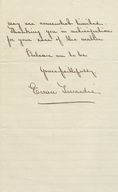 way are somewhat limited
Thanking you in anticipation
for your care of this matter
Believe me to be
Yours faithfully